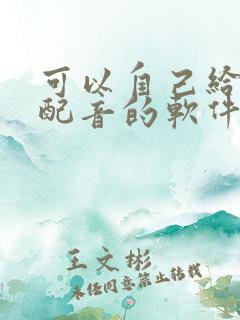 可以自己給
配音的軟件
王文彬
未任同意禁止转载